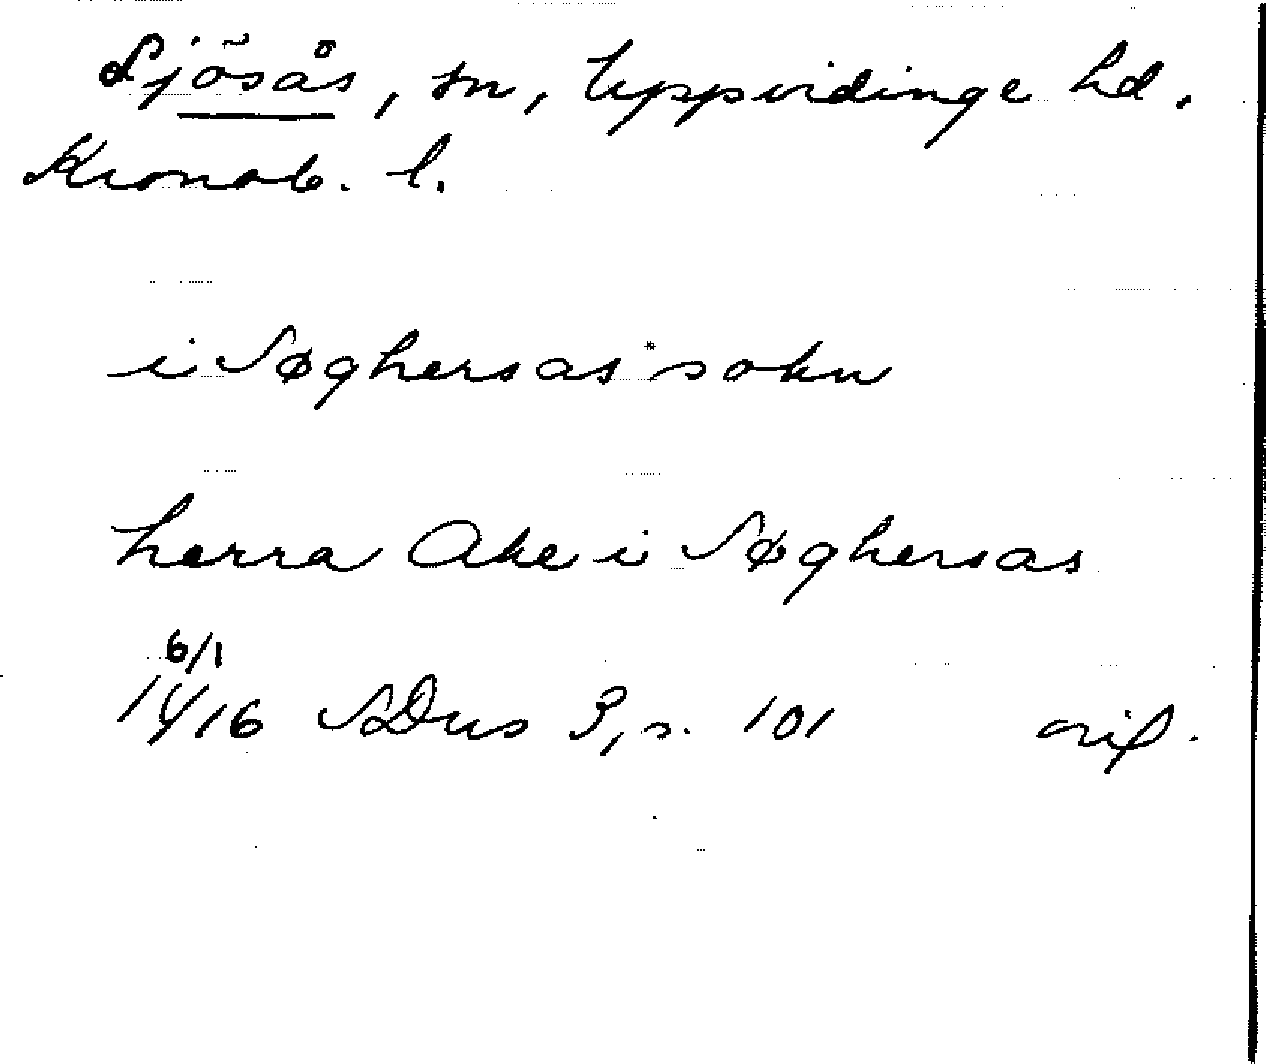 Sjösås, sn, Uppvidinge hd.
Kronob. l.
i Søghersas sokn
herra Ake i Søghersas
6/1
1416 SDns 3, s. 101 orig.